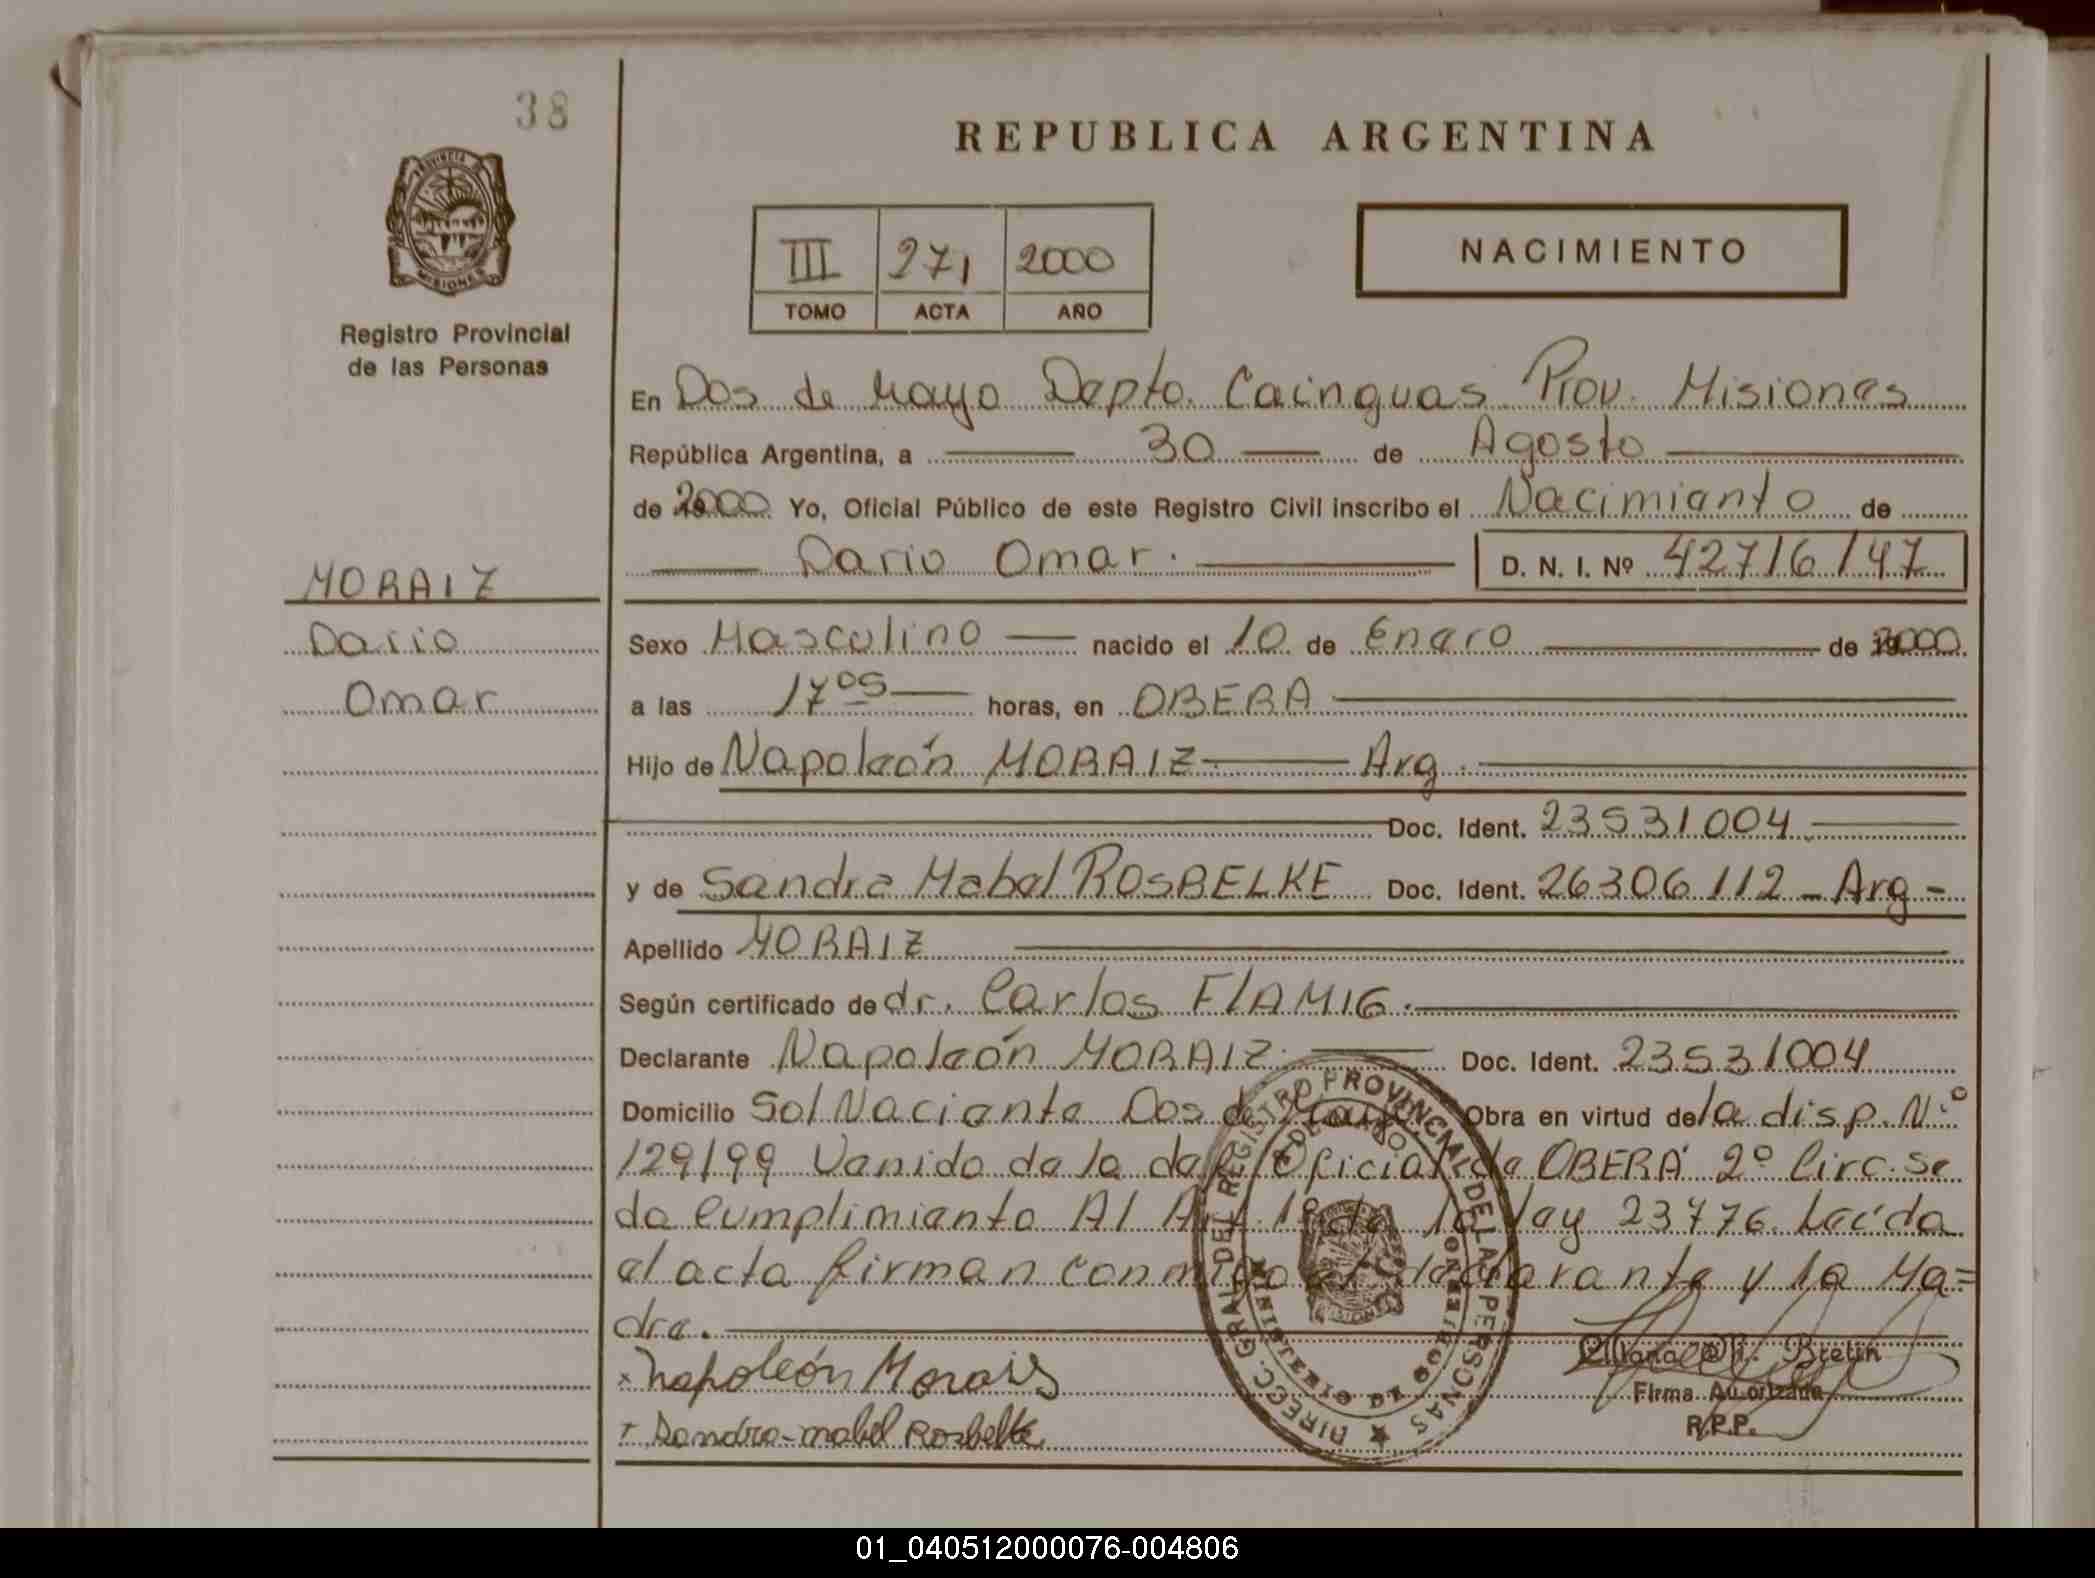 38
REPUBLICA ARGENTINA
PROVINCIA DE MISIONES
III 271 2000
TOMO ACTA AÑO
NACIMIENTO
Registro Provincial
de las Personas
En Dos de Mayo Depto. Cainguas Prov. Misiones
República Argentina, a 30 de Agosto
de 2000 Yo, Oficial Público de este Registro Civil inscribo el Nacimiento de
Dario Omar. D. N. I. Nº 42716147
MORAIZ
Dario
Omar
Sexo Masculino nacido el 10 de Enero de 2000
a las 17 05 horas, en OBERA
Hijo de Napoleón MORAIZ Arg.
Doc. Ident. 23531004
y de Sandra Mabel ROSBELKE Doc. Ident. 26306112 - Arg -
Apellido MORAIZ
Según certificado de dr. Carlos FLAMIG.
Declarante Napoleón MORAIZ. Doc. Ident. 23531004
Domicilio Sol Naciente Dos de Mayo Obra en virtud de la disp. Nº
129/99 Venido de la del. Oficial de OBERÁ 2º Circ. se
da Cumplimiento Al Art. 1º de la ley 23776. Leída
el acta firman conmigo el declarante y la Ma=
dre.
x Napoleón Morais
+ Sandra-mabel Rosbelke
DIRECC. GRAL. DEL REGISTRO PROVINCIAL DE LAS PERSONAS
Firma Autorizada
R.P.P.
01_040512000076-004806